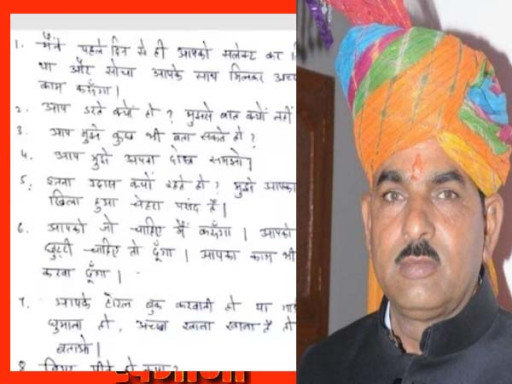 1. मैंने पहले दिन से ही आपको सलेक्ट कर
था और सोचा आपके साथ मिलकर
काम करूँगा।
2. आप डरते क्यों हो? मुझसे बात क्यों नहीं
3. आप मुझे कुछ भी बता सकते हो?
4. आप मुझे अपना दोस्त समझो।
5. इतना उदास क्यों रहते हो? मुझे आपका
खिला हुआ चेहरा पसंद है।
6. आपको जो चाहिए मैं करूँगा। आपको
छुट्टी चाहिए तो दूँगा। आपका काम भी
करवा दूँगा।
7. आपके होटल बुक करवानी हो या
घुमाना हो, अच्छा खाना खाना है तो
बताओ।
8.